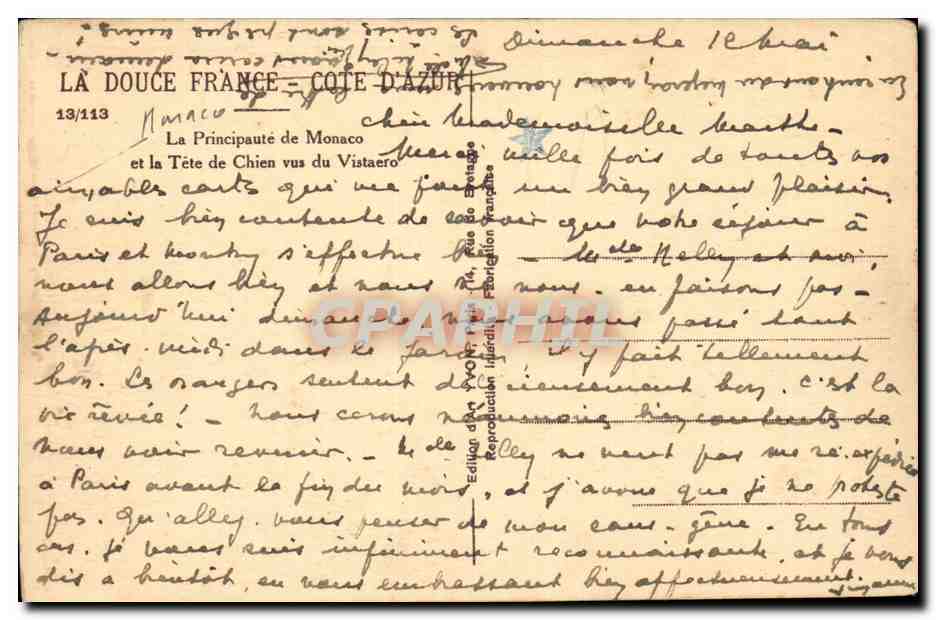 Dimanche 12 Mai
LA DOUCE FRANCE - COTE D'AZUR
13/113
Monaco
La Principauté de Monaco
et la Tête de Chien vus du Vistaero
Chère Mademoiselle Marthe -
Merci mille fois de toutes vos
aimables cartes qui me font un bien grand plaisir.
Je suis bien contente de savoir que votre séjour à
Paris et s'effectue - Mde Nelly et moi,
nous allons bien et nous ne nous en faisons pas -
Aujourd'hui dimanche, nous avons passé tout
l'après-midi dans le jardin, il y fait tellement
bon. Les orangers sentent délicieusement bon. C'est la
vie rêvée! - Nous serons néanmoins bien contentes de
vous voir revenir. - Mde Nelly ne veut pas me ré.expédier
à Paris avant la fin du mois, et j'avoue que je ne proteste
pas. Qu'allez-vous penser de mon sans-gêne. En tous
cas, je vous suis infiniment reconnaissante, et je vous
dis à bientôt, en vous embrassant bien affectueusement.
Edition d'Art YVON, Paris - 14, Rue de Bretagne
Reproduction Interdite Fabrication française
CPAPHIL